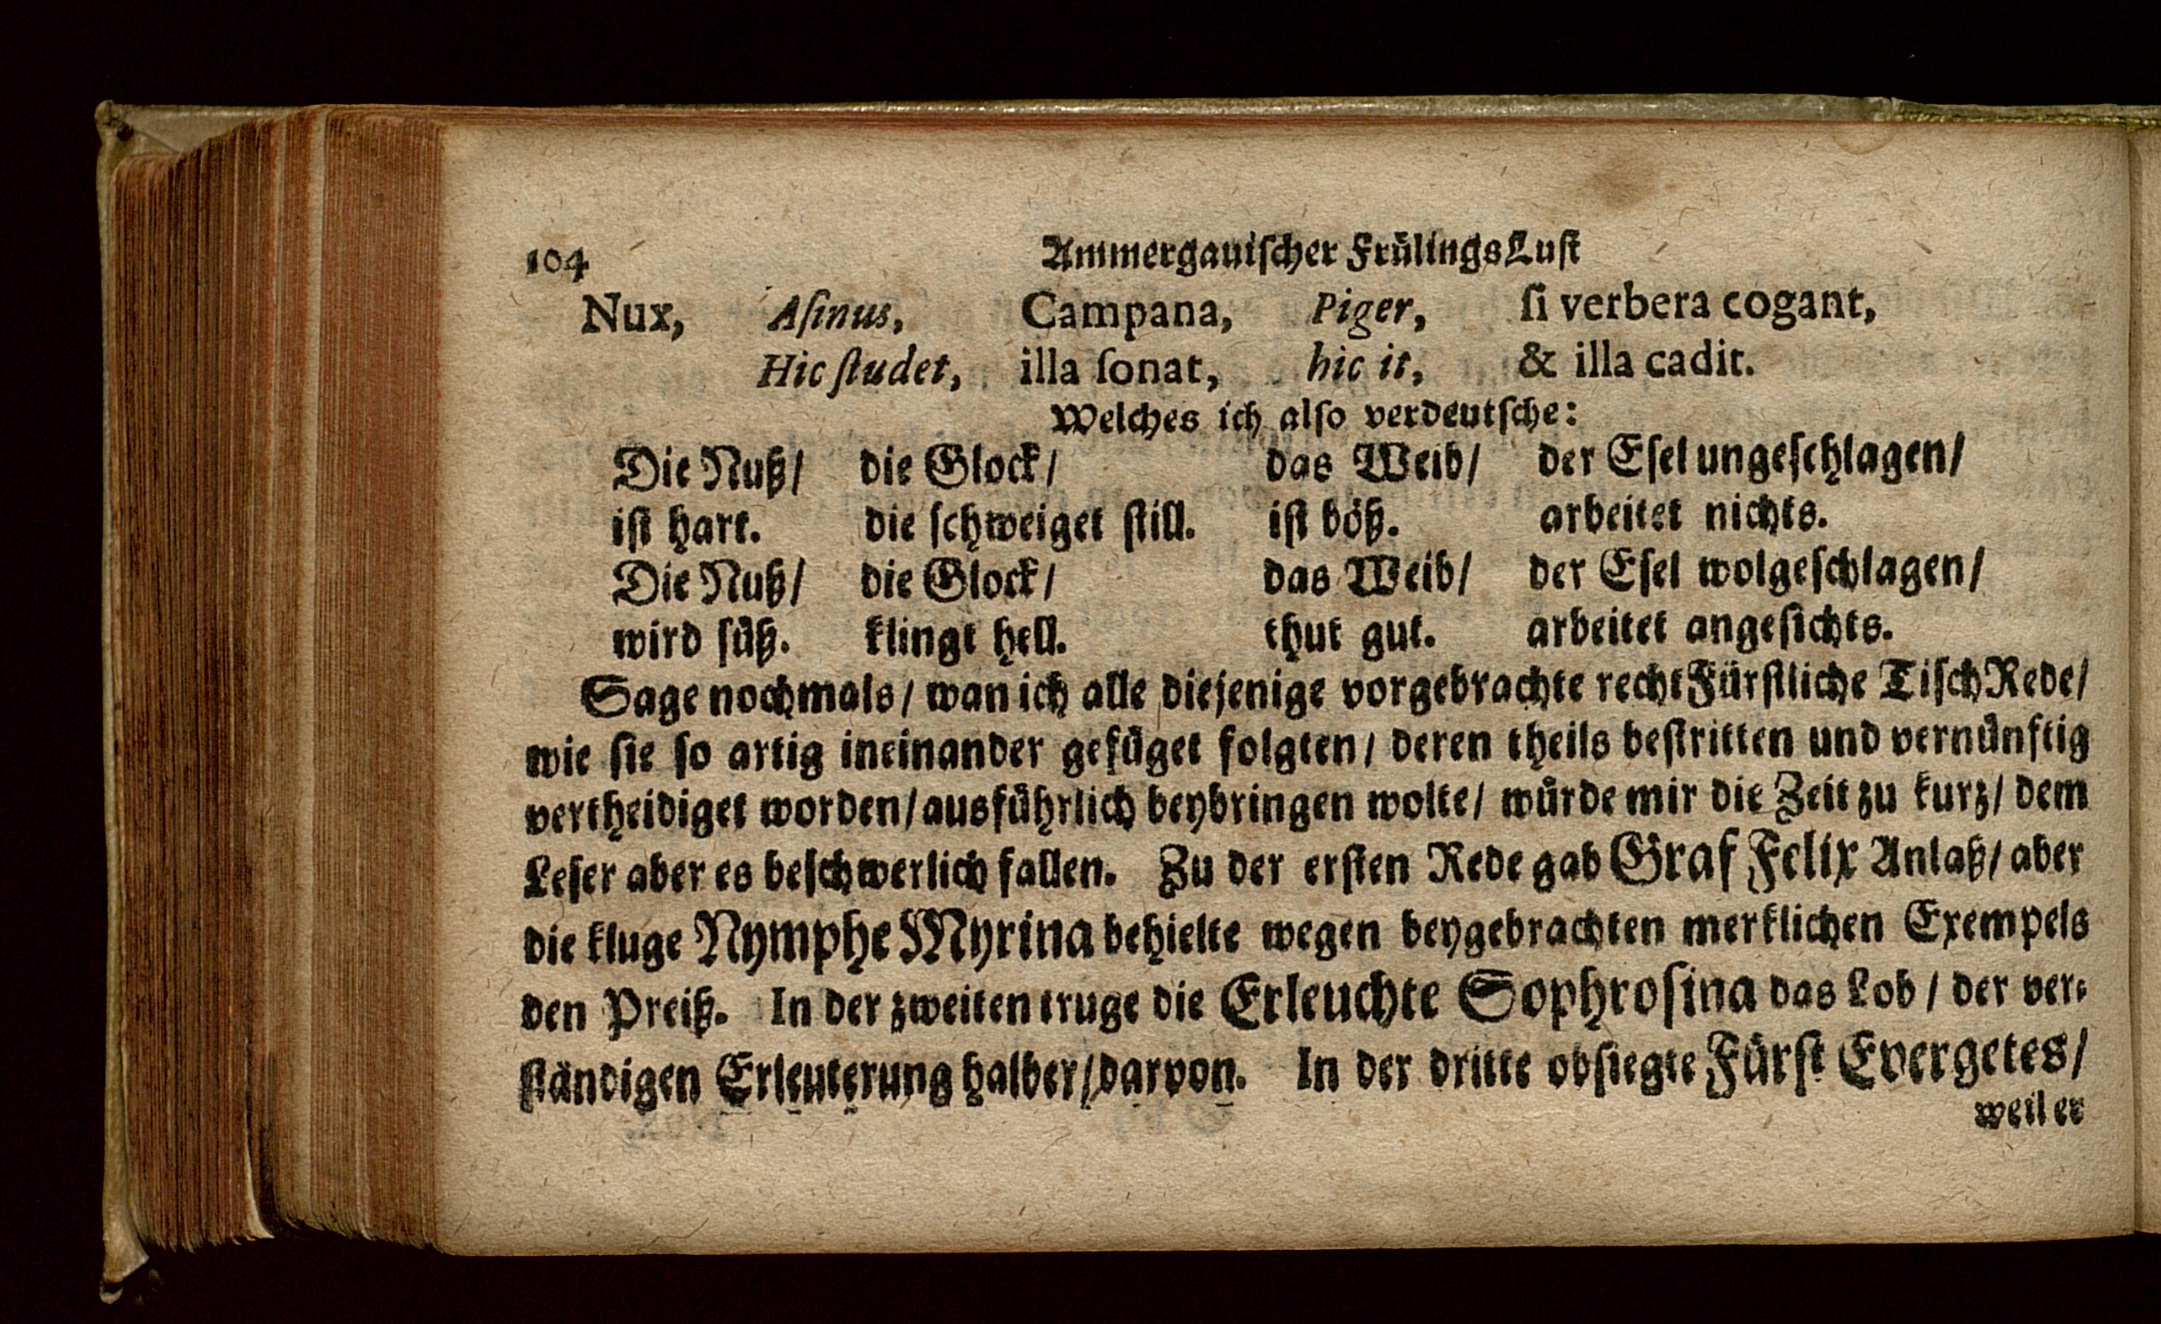 104 Ammergauiſcher FrülingsLuſt
Nux, Aſinus, Campana, Piger, ſi verbera cogant,
Hic ſtudet, illa ſonat, hic it, & illa cadit.
Welches ich alſo verdeutſche:
Die Nuß/ die Glock/ das Weib/ der Eſel ungeſchlagen/
iſt hart. die ſchweiget ſtill. iſt böß. arbeitet nichts.
Die Nuß/ die Glock/ das Weib/ der Eſel wolgeſchlagen/
wird ſüß. klingt hell. thut gut. arbeitet angeſichts.
Sage nochmals/ wan ich alle diejenige vorgebrachte recht Fürſtliche TiſchRede/
wie ſie ſo artig ineinander gefüget folgten/ deren theils beſtritten und vernünftig
vertheidiget worden/ ausführlich beybringen wolte/ würde mir die Zeit zu kurz/ dem
Leſer aber es beſchwerlich fallen. Zu der erſten Rede gab Graf Felix Anlaß/ aber
die kluge Nymphe Myrina behielte wegen beygebrachten merklichen Exempels
den Preiß. In der zweiten truge die Erleuchte Sophroſina das Lob/ der ver⸗
ſtändigen Erleuterung halber/ darvon. In der dritte obſiegte Fürſt Evergetes/
weil er